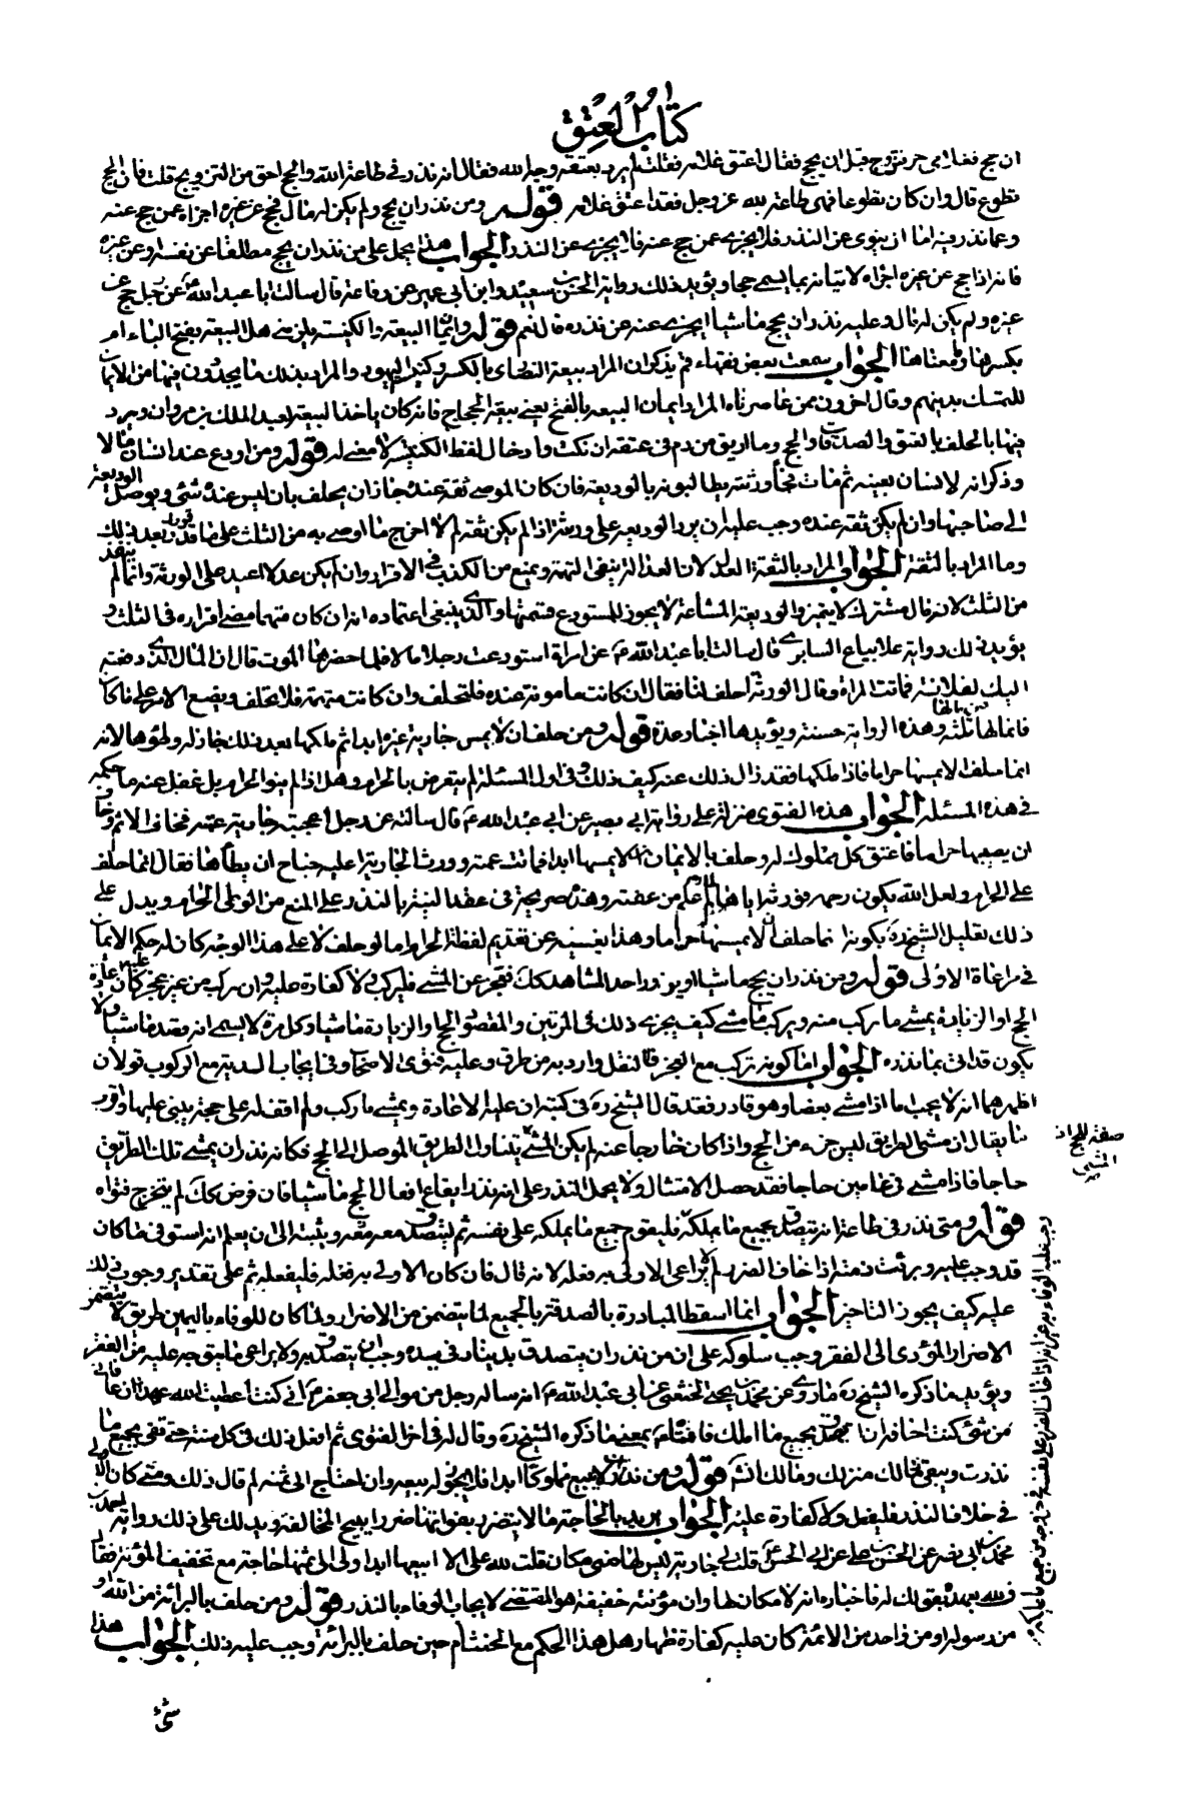 كتاب العتق
ان حج فغلامى حر فتزوج قبل ان يحج فقال اعتق غلامه فقلت لم يرد بعتقه وجه الله فقال انه نذر فى طاعة الله والحج احق من التزويج قلت فان الحج
تطوع قال وان كان تطوعا فهى طاعة لله عز وجل فقد اعتق غلامه قوله ومن نذر ان يحج ولم يكن له مال فحج عن غيره اجزاه عن حج عنه
وعما نذر فيه اما ان ينوى عن النذر فلا يجزى عمن حج عنه فلا يجزى عن النذر الجواب هذا يحمل على من نذر ان يحج مطلقا عن نفسه وعن غيره
فانه اذا حج عن غيره اجزاه لاتيانه بما يسمى حجا ويؤيد ذلك رواية الحسين بن سعيد وابن ابى عمير عن رفاعة قال سالت ابا عبد الله عن رجل حج عن
غيره ولم يكن له مال وعليه نذر ان يحج ماشيا ايجزى عنه عن نذره قال نعم قوله وايمان البيعة والكنيسة يلزم هل البيعة بفتح الباء ام
بكسرها وما معناها الجواب سمعت بعض فقهاء قم يذكر ان المراد بيعة النصارى بالكسر وكنيسة اليهود والمراد بذلك ما يجددون فيها من الايمان
للتمسك بدينهم وقال اخرون ممن عاصرناه المراد ايمان البيعة بالفتح يعنى بيعة الحجاج فانه كان ياخذ البيعة لعبد الملك بن مروان ويجرد
فيها بالحلف بالعتق والصدقات والحج وما اريق من دم فى عنقه ان نكث وادخال لفظ الكنيسة لا معنى له قوله ومن اودع عند انسان مالا
وذكر انه لانسان بعينه ثم مات فجاء ورثته يطالبونه بالوديعة فان كان الموصى ثقة عنده جاز ان يحلف بان ليس عنده شئ ويوصل الوديعة
الى صاحبها وان لم يكن ثقة عنده وجب عليه ان يرد الوديعة على ورثته اذا لم يكن ثقة لم لا اخرج ما اوصى به من الثلث على ما قدر قوله بعد ذلك
وما المراد بالثقة الجواب المراد بالثقة العدل لان العدالة ينفى التهمة ويمنع من الكذب فى الاقرار وان لم يكن عدلا اعيد على الورثة وانما لم ينفذ
من الثلث لانه قال مشترك لا يتميز والوديعة المشاعة لا يجوز للمستودع قسمتها والذى ينبغى اعتماده انه ان كان متهما مضى اقراره فى الثلث و
يؤيد ذلك رواية علا بياع السابرى قال سالت ابا عبد الله عن امراة استودعت رجلا مالا فلما حضرها الموت قالت ان المال الذى دفعته
اليك لفلانة فماتت المراة وقال الورثة احلف لنا فقال ان كانت مامونة عنده فليحلف وان كانت متهمة فلا يحلف ويضع الامر على ما كان
فانما لها من مالها ثلثه وهذه الرواية حسنة ويؤيدها اخبار عدة قوله ومن حلف ان لا يمس جارية غيره ابدا ثم ملكها بعد ذلك جاز له وطؤها لانه
انما حلف الا يمسها حراما فاذا ملكها فقد زال ذلك عنه كيف ذلك وفى اول المسئلة لم يتعرض بالحرام وهل اذا لم ينو الحرام بل غفل عنه ما حكمه
فى هذه المسئلة الجواب هذه الفتوى منزلة على رواية ابى بصير عن ابى عبد الله قال سالته عن رجل اعجبته جارية عمته فخاف الاثم وخاف
ان يصيبها حراما فاعتق كل مملوك له وحلف بالايمان ان لا يمسها ابدا فماتت عمته وورث الجارية اعليه جناح ان يطأها فقال انما حلف
على الحرام ولعل الله يكون رحمه فورثه اياها لما علم من عفته وهذه صريحة فى عقد النية بالنذر على المنع من الوطى الحرام ويدل على
ذلك تعليل الشيخ ره بكونه انما حلف ان لا يمسها حراما وهذا يغنيه عن تقديم لفظة الحرام اما لو حلف لا على هذا الوجه كان له حكم الايمان
فى مراعاة الاولى قوله ومن نذر ان يحج ماشيا او يزور احد المشاهد كك فعجز عن المشى فليركب ولا كفارة عليه وان ركب من غير عجز كان عليه اعادة
الحج او الزيارة يمشى ما ركب منه ويركب ما مشى كيف يجزى ذلك فى المرتين والمقصود الحج او الزيارة ماشيا وكل مرة لا يسمى انه قصد ماشيا ولا
يكون قد اتى بما نذره الجواب اما كونه يركب مع العجز فالنقل وارد به من طرق وعليه فتوى الاصحاب وفى ايجاب البدنة مع الركوب قولان
اظهرهما انه لا يجب اما اذا مشى بعضا وهو قادر فقد قال الشيخ ره فى كتبه ان عليه الاعادة ويمشى ما ركب ولم اقف له على حجة يبنى عليها واقرب
ما يقال ان مشى الطريق ليس جزء من الحج واذا كان خارجا عنه لم يكن المشى يتناول الطريق الموصل الى الحج فكانه نذر ان يمشى تلك الطريق
حاجا فاذا مشى فى عامين حاجا فقد حصل الامتثال ولا يحمل النذر على انه نذر ايقاع افعال الحج ماشيا فان فرض كك لم يتخرج فتواه
قوله ومتى نذر فى طاعة انه يتصدق بجميع ما يملكه فليقوم جميع ما يملكه على نفسه ثم ليتصدق معرفه ويثبته الى ان يعلم انه استوفى ما كان
قد وجب عليه وبرئت ذمته اذا خاف الضرر لم لا يراعى الاولى به فعله لانه قال فان كان الاولى به فعله فليفعله ثم على تقدير وجوب ذلك
عليه كيف يجوز التاخير الجواب انما اسقط المبادرة بالصدقة بالجميع لما يتضمن من الاضرار ولما كان للوفاء باليمين طريق لا يتضمن
الاضرار المؤدى الى الفقر وجب سلوكه على ان من نذر ان يتصدق بدينار فى يده وجب ان يتصدق به ولا يراعى ما يتوجه عليه من الفقر
ويؤيد ما ذكره الشيخ ره ما روى عن محمد بن يحيى الخثعمى عن ابى عبد الله انه ساله رجل من موالى ابى جعفر انى كنت اعطيت الله عهدا ان عافانى
من شئ كنت اخافه ان اتصدق بجميع ما املك فافتاه بمعنى ما ذكره الشيخ ره وقال له فى اخر الفتوى ثم افعل ذلك فى كل سنة حتى تفى بجميع ما
نذرت ويبقى لك منزلك ومالك انشم قوله ومن نذر ان لا يبيع مملوكا ابدا فلا يجوز له بيعه وان احتاج الى ثمنه لم قال ذلك ومتى كان الاولى
فى خلاف النذر فليفعل ولا كفارة عليه الجواب يريد بالحاجة مالا يتضرر بفواتها ضررا يبيح المخالفة ويدل على ذلك رواية احمد بن
محمد بن ابى نصر عن الحسن بن على عن ابى الحسن قلت لى جارية ليس لها منى مكان قلت لله على الا ابيعها ابدا ولى الى ثمنها حاجة مع تخفيف المؤنة فقال
ف لله بعهد بقولك له فاخباره انه لا مكان لها وان مؤنته خفيفة هو المقتضى لايجاب الوفاء بالنذر قوله ومن حلف بالبرائة من الله او
من رسوله او من واحد من الائمة كان عليه كفارة ظهار وهل هذا الحكم مع الحنث ام حين حلف بالبرائة وجب عليه ذلك الجواب هذا
شئ
صفة للحج اذ
المشى
وجب عليه الوفاء به غير انه اذا خاف الضرر على نفسه فى خروجه من جميع ما يملكه